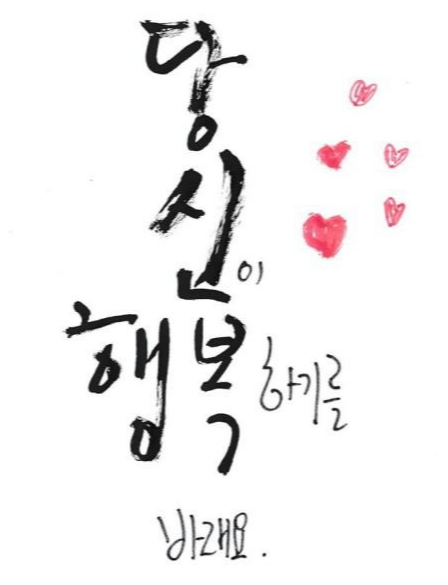 당
신이
행복하기를
바래요.